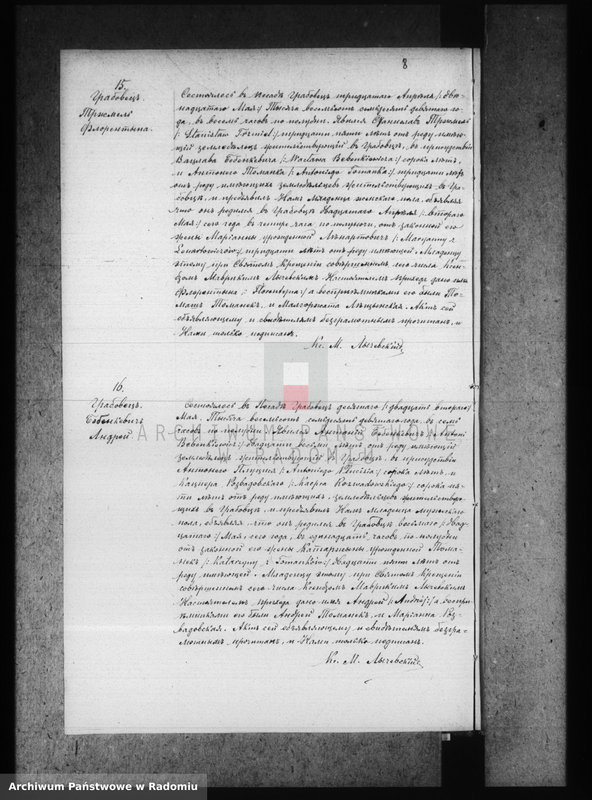 8
15.
Грабовец
Флорентына.
Состоялось въ посадѣ Грабовецъ тридцатаго Апрѣля /: двѣ-
надцатаго Мая :/ Тысяча восемьсотъ семьдесятъ девятаго го-
да, въ восемь часовъ по полудни. Явился Станиславъ
/: Stanisław Torniel :/ тридцати пяти лѣтъ отъ роду имѣю-
щій земледѣлецъ жительствующій въ Грабовцѣ, въ присутствіи
Вацлава /: Wacława :/ сорока лѣтъ,
и Антонего Томанка /: Antoniego Tomanka :/ тридцати лѣтъ
отъ роду имѣющихъ земледѣльцевъ жительствующихъ въ Гра-
бовцѣ, и предъявилъ Намъ Младенца женскаго пола, объявляя
что онъ родился въ Грабовцѣ двадцатаго Апрѣля /: втораго
Мая :/ сего года въ четыре часа по полуночи, отъ законной его
жены Маріанны урожденной /: Maryanny z
:/ тридцати лѣтъ отъ роду имѣющей. Младенцу
этому при Святомъ Крещеніи совершенномъ сего числа Ксен-
дзомъ Маврикимъ Лычевскимъ Настоятелемъ прихода дано имя
Флорентына /: :/ а воспріемниками его были То-
машъ Томанекъ, и Малгоржата. Актъ сей
объявляющему и свидѣтелямъ безграмотнымъ прочитанъ, и
Нами только подписанъ.
Кс. М. Лычевскій
16.
Грабовецъ
Андрей.
Состоялось въ Посадѣ Грабовецъ десятаго /: двадцать втораго :/
Мая, Тысяча восемьсотъ семьдесятъ девятаго года, въ семь
часовъ по полудни. Явился Антоній /: Antoni
:/ двадцати восьми лѣтъ отъ роду имѣющій
земледѣлецъ жительствующій въ Грабовцѣ, въ присутствіи
Антонего /: Antoniego :/ сорока лѣтъ, и
Кацпера Розвадовскаго /: Kacpra Rozwadowskiego :/ сорока пя-
ти лѣтъ отъ роду имѣющихъ, земледѣльцевъ жительствую-
щихъ въ Грабовцѣ, и предъявилъ Намъ Младенца мужескаго
пола, объявляя, что онъ родился въ Грабовцѣ восьмаго /: двад-
цатаго :/ Мая, сего года, въ одинадцать часовъ по полудни
отъ законной его жены Катаржины урожденной Тома-
некъ /: Katarzyny z Tomanków :/ двадцати пяти лѣтъ отъ
роду имѣющей. Младенцу этому при Святомъ Крещеніи
совершенномъ сего числа Ксендзомъ Маврикимъ Лычевскимъ
Настоятелемъ прихода дано имя Андрей /: Andrzej :/ а воспрі-
емниками его были Андрей Томанекъ, и Маріанна Роз-
вадовская. Актъ сей объявляющему и свидѣтелямъ безгра-
мотнымъ прочитанъ, и Нами только подписанъ.
Кс. М. Лычевскій
Archiwum Państwowe w Radomiu